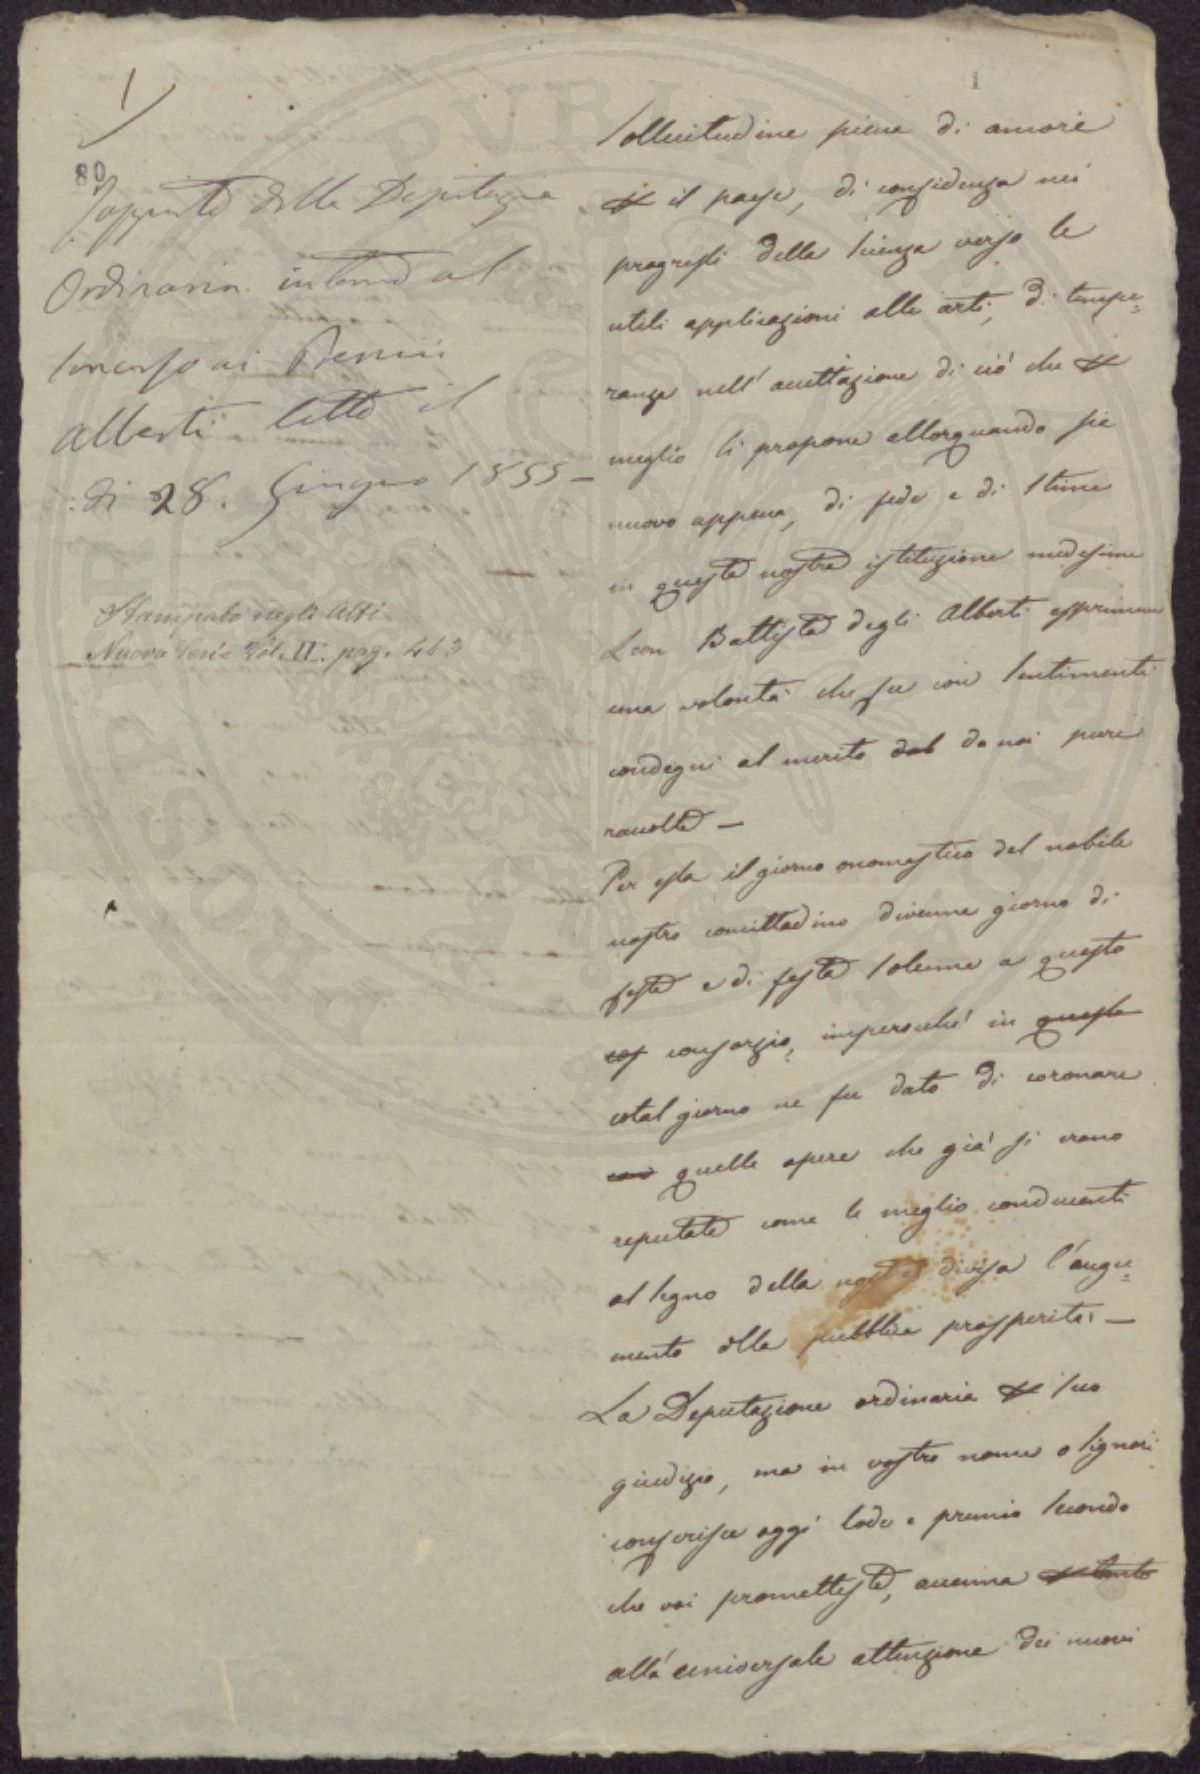 1
1
80
Rapporto della Deputazne
Ordinaria intorno al
Concorso ai Premii
Alberti letto il
di 28. Giugno 1855 -
Stampato negli Atti
Nuova Serie Vol. II. pag. 463
Sollecitudine piena di amore
il paese, di confidenza nei
progressi della scienza verso le
utili applicazioni alle arti, di tempe=
ranza nell' accettazione di ciò che
meglio si propone allorquando sia
nuovo appena, di fede e di stima
in questa nostra istituzione medesima
Leon Battista degli Alberti esprimeva
una volontà che fu con sentimenti
condegni al merito dal da noi pure
raccolta —
Per essa il giorno onomastico del nobile
nostro concittadino divenne giorno di
festa e di festa solenne a questo
cos consorzio, imperocché in questo
cotal giorno ne fu dato di coronare
con quelle opere che già si erano
reputate come le meglio conducenti
al segno della nostra divisa l'augu=
mento della pubblica prosperità —
La Deputazione ordinaria suo
giudizio, ma in vostro nome o signori
conferisce oggi lode e premio secondo
che voi prometteste, accenna tanto
all' universale attenzione dei nuovi